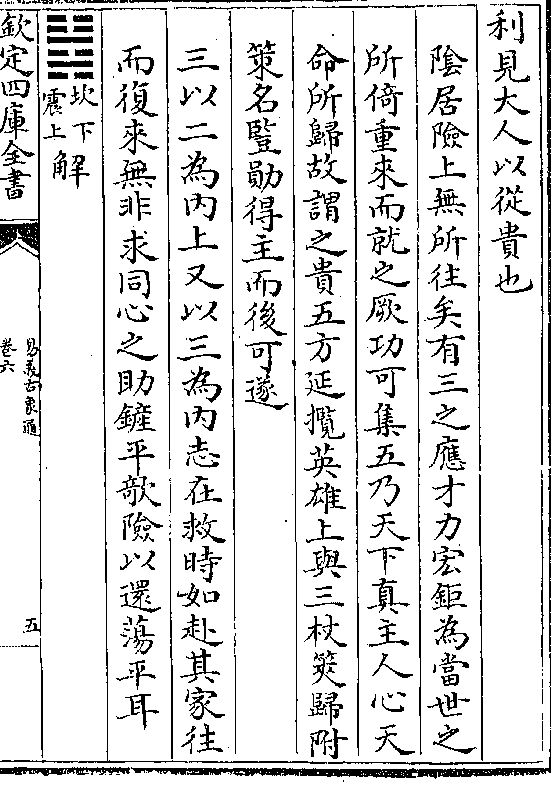 利見大人以從貴也
陰居險上無所往矣有三之應才力宏鉅為當世之
所倚重來而就之厥功可集五乃天下真主人心天
命所歸故謂之貴五方延攬英雄上與三杖筴歸附
策名豎勛得主而後可遂
三以二為內上又以三為內志在救時如赴其家往
而復來無非求同心之助鏟平㪣險以還蕩平耳
坎下
震上
解
欽定四庫全書
易義古象通
卷六
五